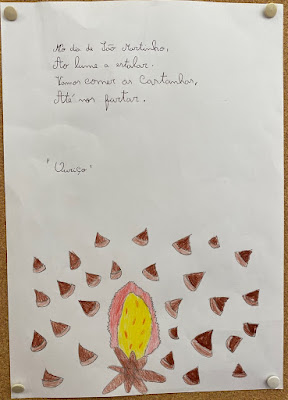 No dia de São Martinho,
Ao lume a estalar.
Vamos comer as Castanhas,
Até nos fartar.
"Ouriço"